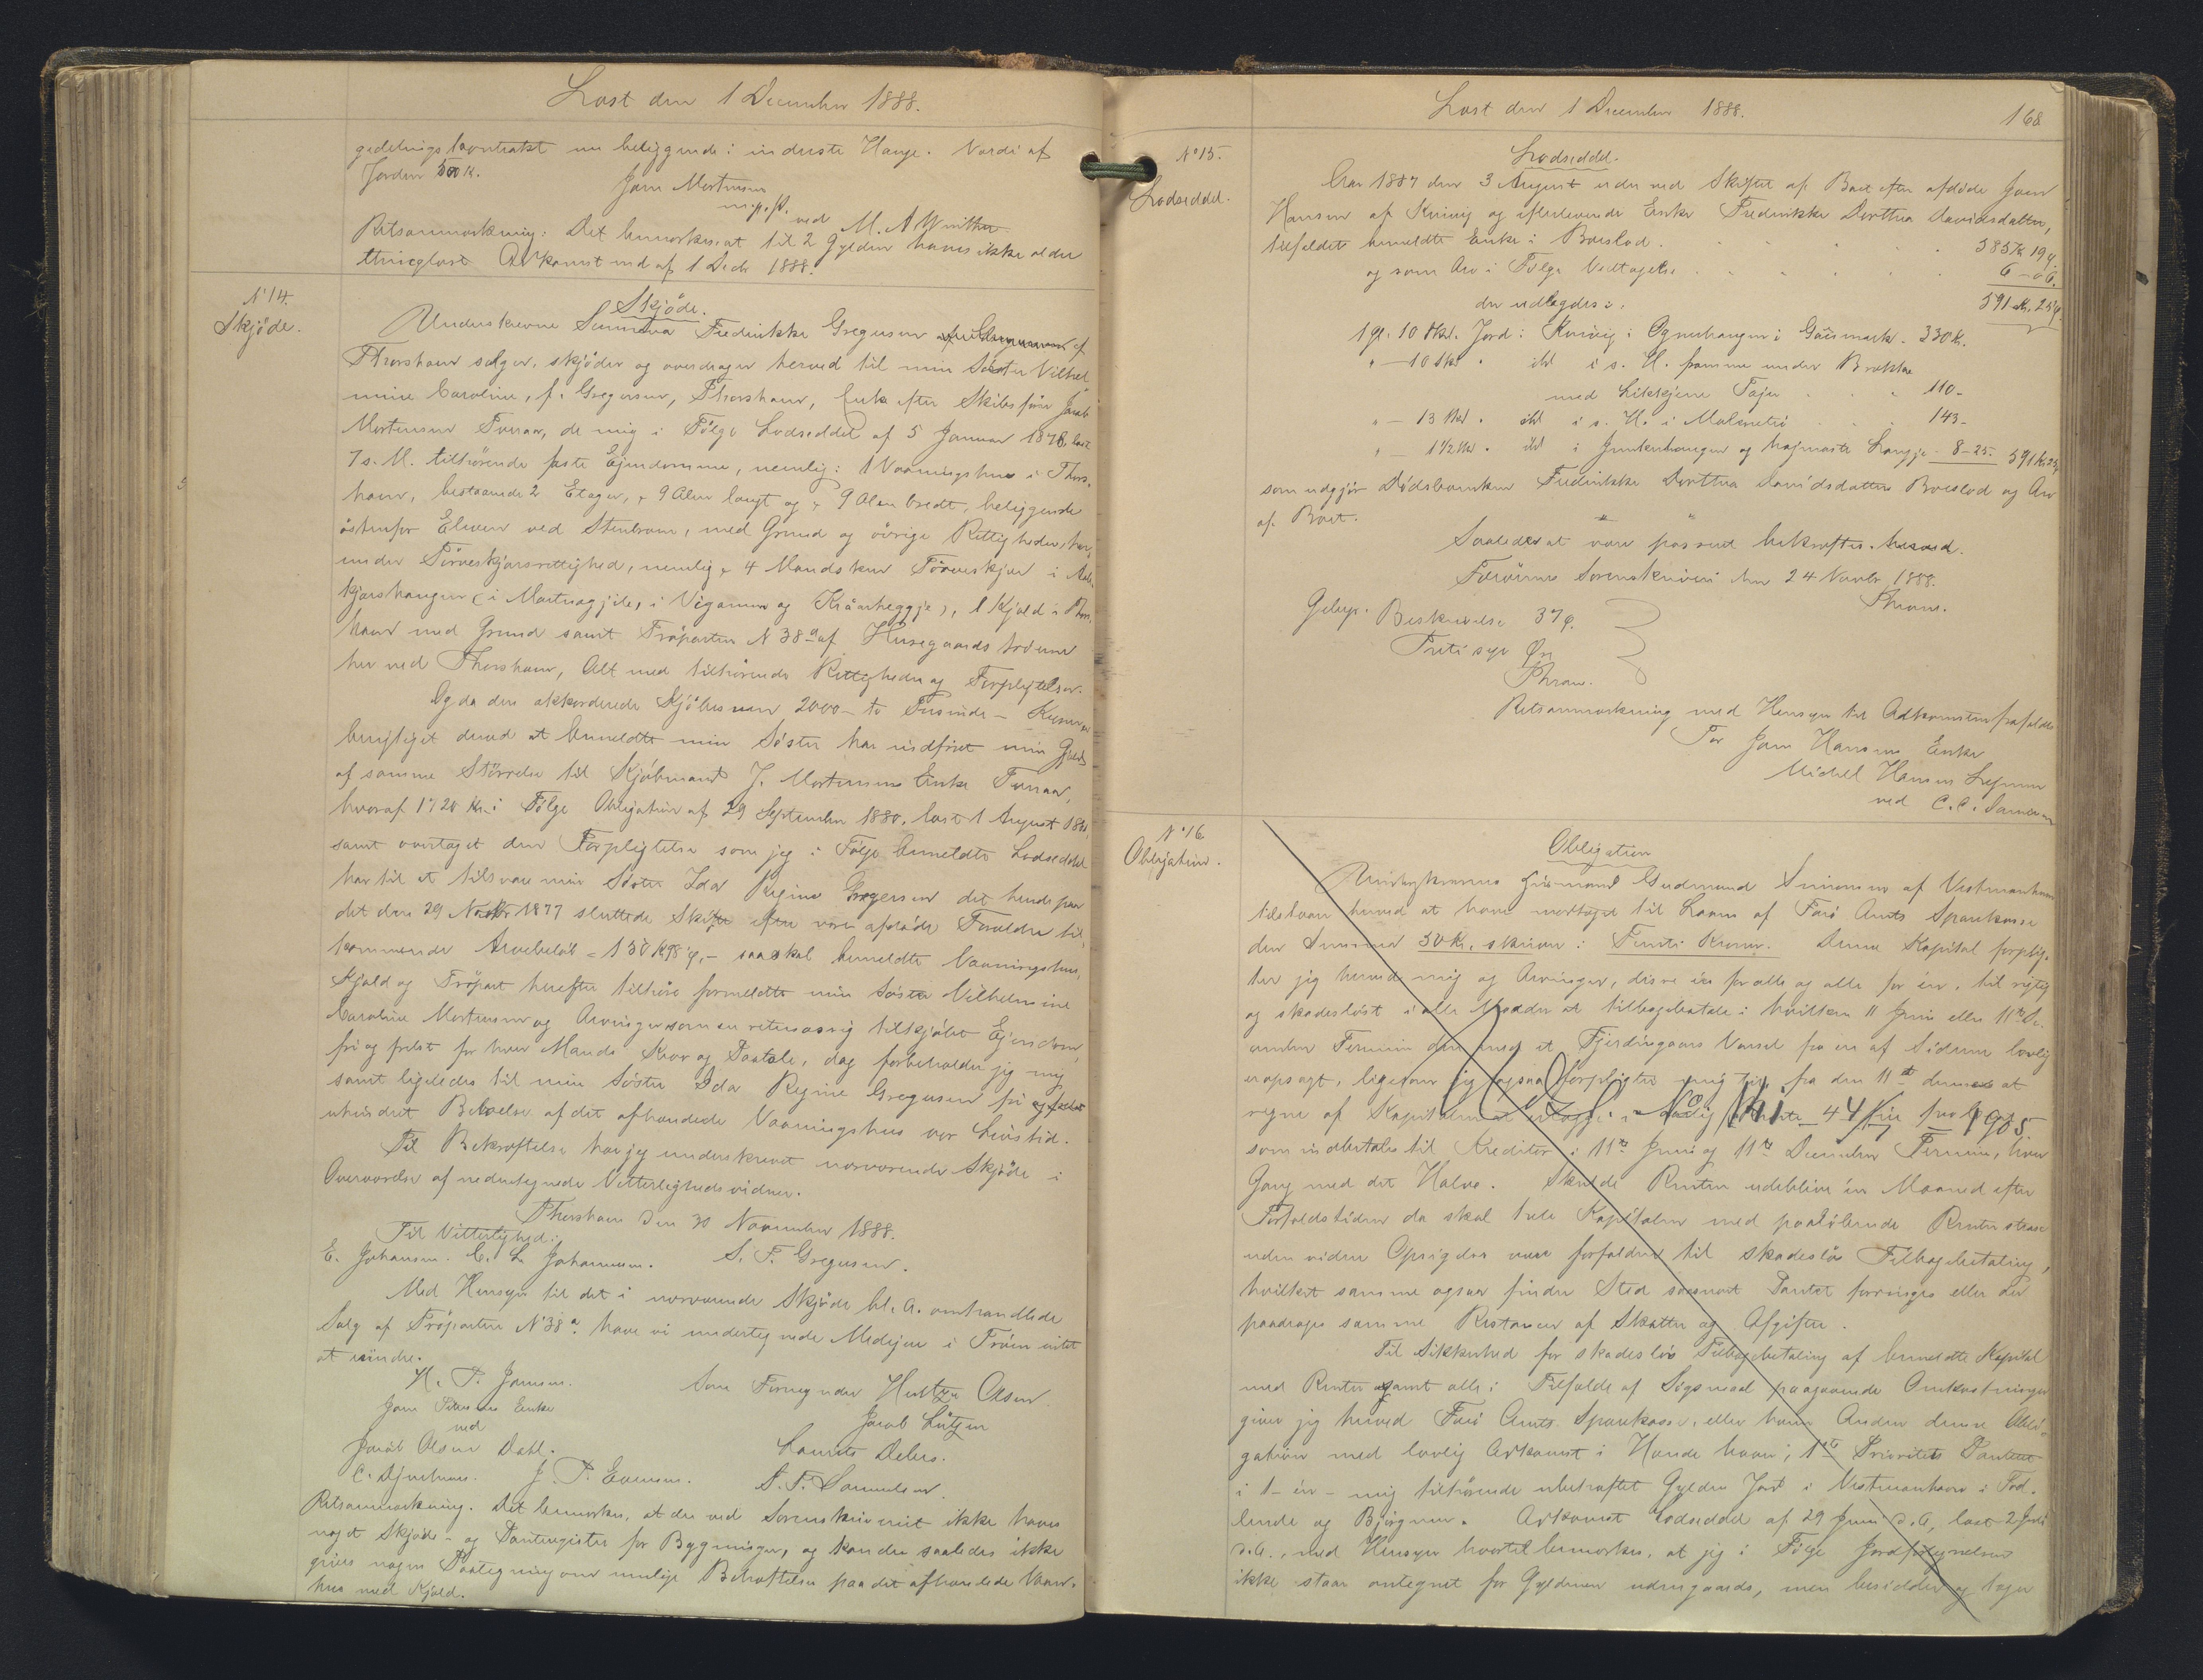 Læst den 1 December 1888.
gedelingskontrakt nu beliggende i inderste Hauge. Værdi af
Jorden 500 K.
Joen Mortensen
m. p. P.
ved M. A Winther
Retsanmærkning: Det bemærkes, at til 2 Gylden haves ikke ældre
thinglæst Adkomst end af 1 Decbr 1888.
N° 14.
Skjøde.
Skjöde.
Underskrevne Sunneva Fredrikke Gregersen af
Thorshavn sælger, skjöder og overdrager herved til min Söster Vilhel
mine Caroline, f. Gregersen, Thorshavn, Enke efter Skibsförer Jacob
Mortensen Tveraa, de mig i Fölge Lodseddel af 5 Januar 1878, læst
7 s. M. tilhörende faste Ejendomme, nemlig: 1 Vaaningshus i Thors,
havn, bestaaende 2 Etager, 9 Alen langt og 9 Alen bredt, beliggende
östenfor Elven ved Stenbroen, med Grund og övrige Rettigheder, her,
under Törveskjærsrettighed, nemlig 4 Mands kur Törveskjær i
kjærshaugen (i Martnagjile, i Vigarnum og Kráarheyggje), 1 Kjald i Thors,
havn med Grund samt Tröparten N 38 a af Husegaards tröerne
her ved Thorshavn, Alt med tilhörende Rettigheder og Forpligtelser.
Og da den akkorderede Kjöbesum 2000 - to Tusinde - Kroner er
berigtiget derved at bemeldte min Söster har indfriet min Gjæld
af samme Störrelse til Kjöbmand J. Mortensens Enke Tveraa,
hvoraf 1720 Kr. i Fölge Obligation af 29 September 1880, læst 1 August 188
samt overtaget den Forpligtelse som jeg i Fölge bemeldte Lodseddel
har til at tilsvare min Söster Ida Regine Gregersen det hende paa
det den 29 Novbr 1877 sluttede Skifte efter vore afdöde Forældre til,
kommende Arvebelöb = 150 K 98 ø, - saa skal bemeldte Vaaningshus,
Kjald og Tröpart herefter tilhöre formeldte min Söster Vilhelmine
Caroline Mortensen og Arvinger som en retmæssig tilkjöbt Ejendom,
fri og frelst for hver Mands Krav og Paatale, dog forbeholder jeg mig
samt ligeledes til min Söster Ida Regine Gregersen fri og
uhindret Beboelse af det afhændede Vaaningshus vor Livstid.
Til Bekræftelse har jeg underskrevet nærværende Skjöde i
Overværelse af nedentegnede Vitterlighedsvidner.
Thorshavn den 30 November 1888.
Til Vitterlighed:
E. Johansen. C. L. Johannesen. S. F. Gregersen.
Med Hensyn til det i nærværende Skjöde bl. A. omhandlede
Salg af Tröparten N° 38 a have vi undertegnede Medejere i Tröen intet
at erindre.
H. P. Joensen. Som Formynder Hultzen Olsen.
Joen Petersens Enke Jacob Lützen
ved
Jacob Olsen Dahl. Laurits Debes.
C. Djurhuus. J. P. Evensen. S. F. Samuelsen.
Retsanmærkning. Det bemærkes, at der ved Sorenskriveriet ikke haves
noget Skjöde- og Panteregister for Bygninger, og kan der saaledes ikke
gives nogen Paategning om mulige Behæftelser paa det afhændede Vaan,
hus med Kjald.
Læst den 1 December 1888.
168
N° 15.
Lodseddel.
Lodseddel.
Aar 1887 den 3 August er der ved Skiftet af Boet efter afdöde Joen
Hansen af Kvivig og efterlevende Enke Fredrikke Dorthea Davidsdatter,
tilfaldet bemeldte Enke i Boeslod . . . 585 K 19 ø.
og som Arv i Fölge Vedtagelse . . . 6 - 06.
591 K. 25 ø.
der udlagdes:
1 gl. 10 Skd. Jord i Kvivig i Ognehaugen i Gaïsmark - 330 K.
" - 10 Skd " ibd i s. H. framme under Brekku
med Likkjune Tajer . . . 110 -
" - 13 Skd . ibd i s. H. i Malunetrö . . . 143 -
" - 1 1/2 Skd . ibd i Junkerhaugen og hajmaste Haugje - 8 - 25. 591 K. 25 ø
som udgjör Dödsboenken Fredrikke Dorthea Davidsdatters Boeslod og Arv
af Boet.
Saaledes at være passeret bekræftes herved.
Færöernes Sorenskriveri den 24 Novbr 1888.
Thrane.
Gebyr. Beskrivelse 37 ø.
Treti syv Øre
Thrane.
Retsanmærkning med Hensyn til Adkomsten frafaldes
For Joen Hansens Enke
Michel Hansen Lejnum
ved C. C. Danielsen
N° 16
Obligation.
Obligation
Underskrevne Husmand Gudmund Simonsen af Vestmanhavn
tilstaar herved at have modtaget til Laans af Færö Amts Sparekasse
den Summa 50 K., skriver: Femti Kroner. Denne Kapital forplig,
ter jeg herved mig og Arvinger, disse én for alle og alle for én, til rigtig
og skadeslöst i alle Maader at tilbagebetale i hvilken 11 Juni eller 11te De,
cember Termin der med et Fjerdingaars Varsel fra en af Siderne lovlig
eropsagt, ligesom jeg ogsaa forpligter mig til, fra den 11te dennes at
regne af Kapitalen at erlægge i aarlig Rente 4 4/ fire pro Cent
N° 141 1/7 1905
som indbetales til Kreditor i 11te Juni og 11te December Termin, hver
Gang med det Halve. Skulde Renten udeblive én Maaned efter
Forfaldstiden da skal hele Kapitalen med paalöbende Renter strax
uden videre Opsigelse være forfalden til skadeslös Tilbagebetaling,
hvilket samme ogsaa finder Sted saasnart Pantet forringes eller der
paadrages samme Restancer af Skatter og Afgifter.
Til Sikkerhed for skadeslös Tilbagebetaling af bemeldte Kapital
med Renter samt alle i Tilfælde af Sögsmaal paagaaende Omkostninger
giver jeg herved Færö Amts Sparekasse, eller hvem Anden denne Obli,
gation med lovlig Adkomst i Hænde haver, 1ste Prioritets Panteret
i 1 - én - mig tilhörende ubehæftet Gylden Jord i Vestmanhavn i Fod,
lende og Björgene. Adkomst Lodseddel af 29 Juni d. A, læst 2 Juli
d. A., med Hensyn hvortil bemærkes, at jeg i Fölge Jordfortegnelsen
ikke staar antegnet for Gyldenen udengaards, men besidder og tager